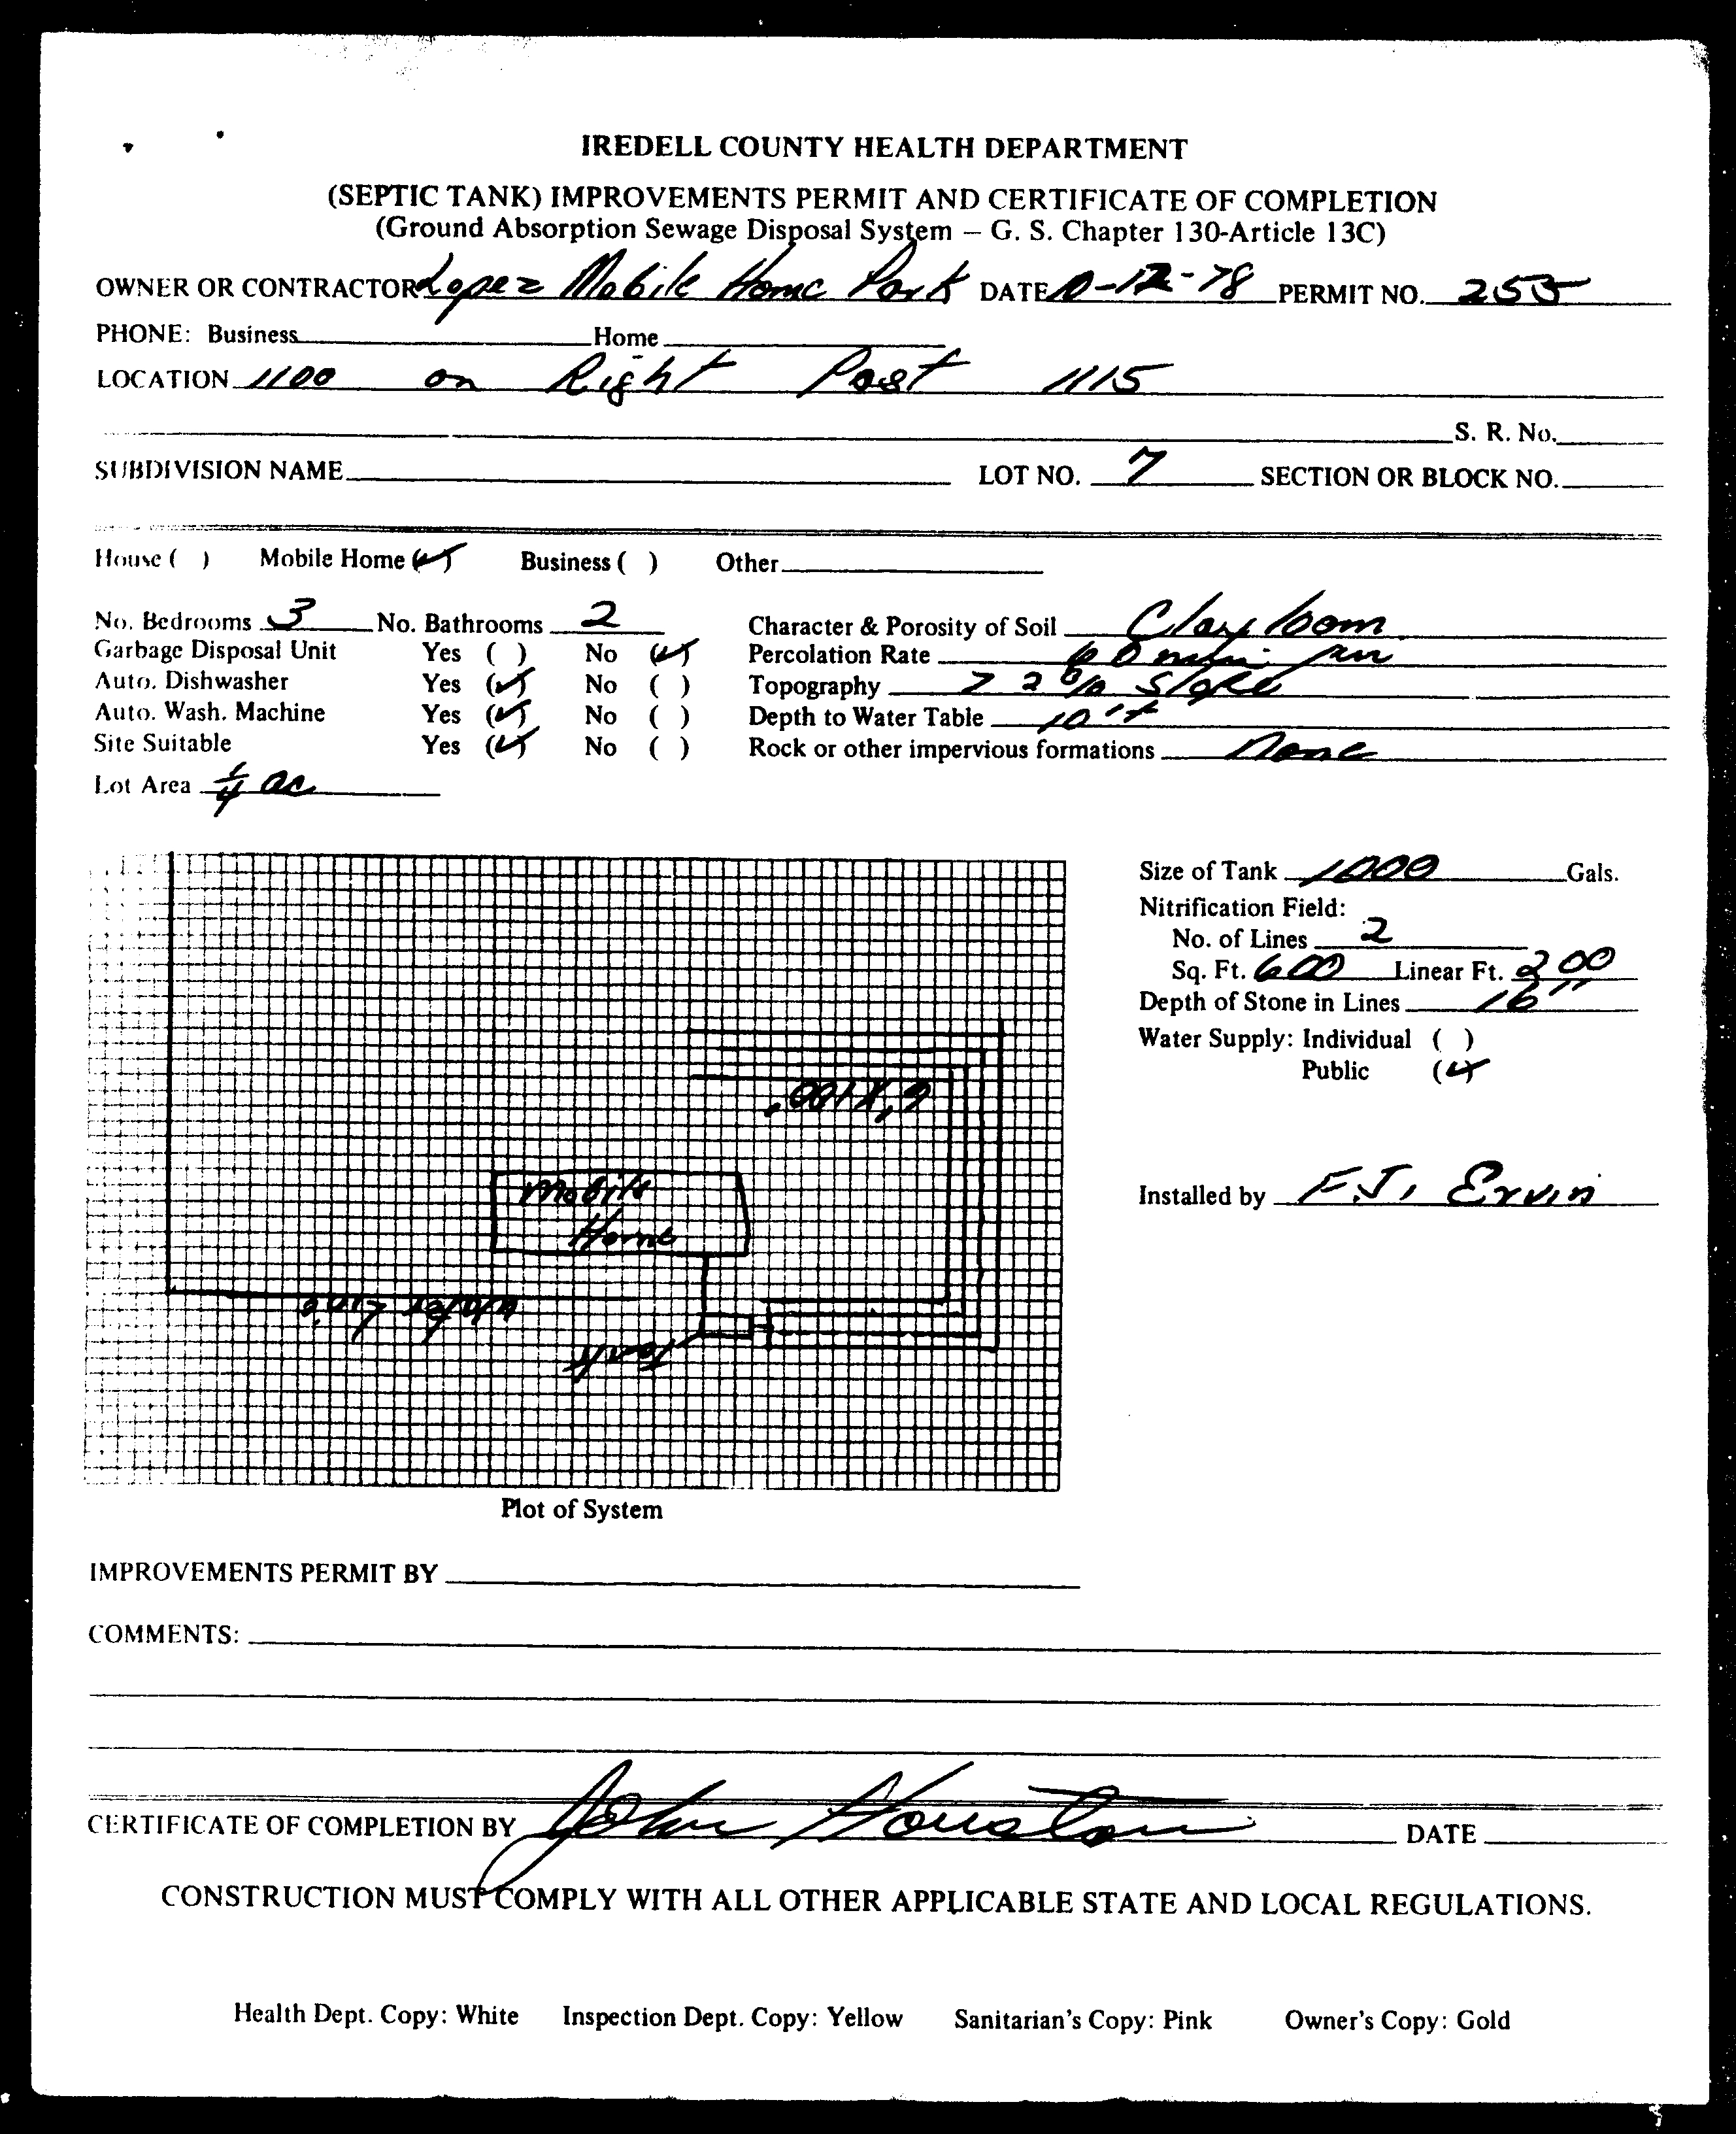 IREDELL COUNTY HEALTH DEPARTMENT
(SEPTIC TANK) IMPROVEMENTS PERMIT AND CERTIFICATE OF COMPLETION
(Ground Absorption Sewage Disposal System – G. S. Chapter 130-Article 13C)
OWNER OR CONTRACTOR Lopez Mobile Home Park DATE 10-12-78 PERMIT NO. 255
PHONE: Business Home
LOCATION 1100 on Right Past 1115
S. R. No.
SUBDIVISION NAME LOT NO. 7 SECTION OR BLOCK NO.
House ( ) Mobile Home (✓) Business ( ) Other
No. Bedrooms 3 No. Bathrooms 2 Character & Porosity of Soil Clay loam
Garbage Disposal Unit Yes ( ) No (✓) Percolation Rate 60 min
Auto. Dishwasher Yes (✓) No ( ) Topography > 2 % Slope
Auto. Wash. Machine Yes (✓) No ( ) Depth to Water Table 10'+
Site Suitable Yes (✓) No ( ) Rock or other impervious formations None
Lot Area 1/4 ac
Size of Tank 1000 Gals.
Nitrification Field:
No. of Lines 2
Sq. Ft. 600 Linear Ft. 200
Depth of Stone in Lines 16"
Water Supply: Individual ( )
Public (✓)
Installed by F.J. Ervin
6'X100'
Mobile
Home
Water Line
Tank
Plot of System
IMPROVEMENTS PERMIT BY
COMMENTS:
CERTIFICATE OF COMPLETION BY John Houston DATE
CONSTRUCTION MUST COMPLY WITH ALL OTHER APPLICABLE STATE AND LOCAL REGULATIONS.
Health Dept. Copy: White Inspection Dept. Copy: Yellow Sanitarian's Copy: Pink Owner's Copy: Gold